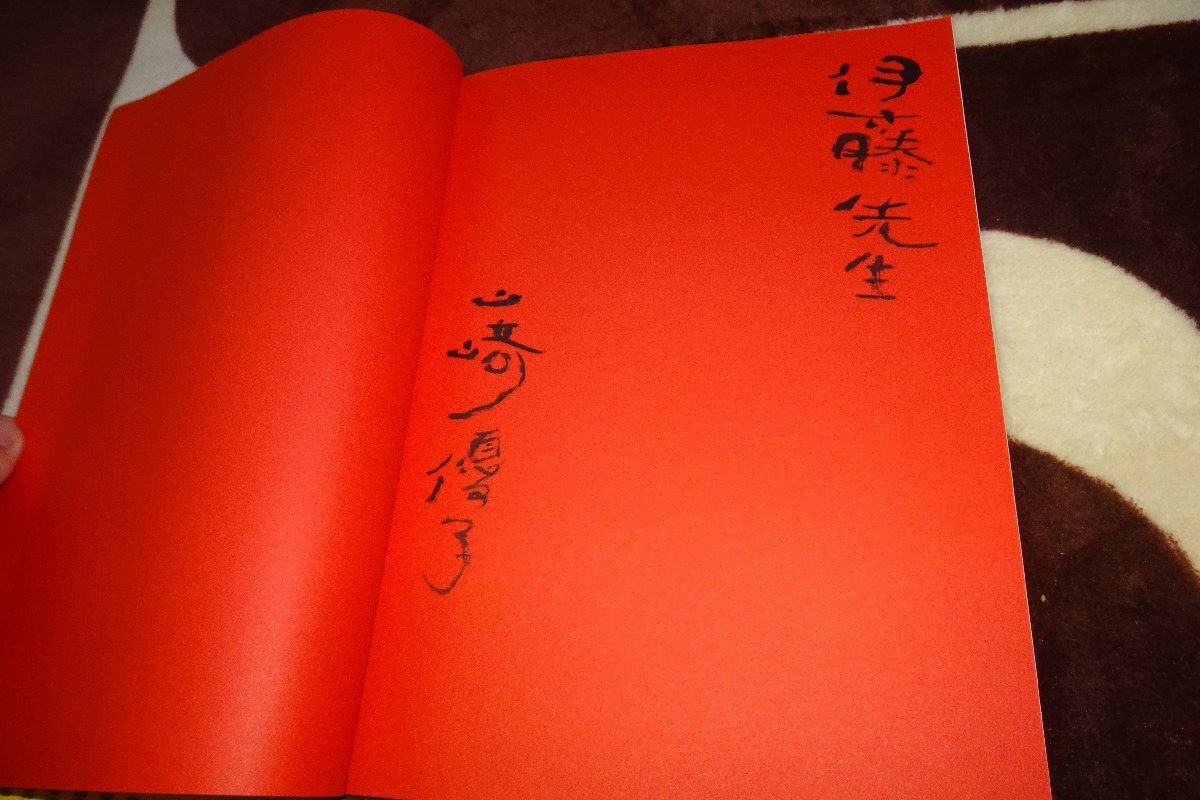 伊藤先生
山崎優子